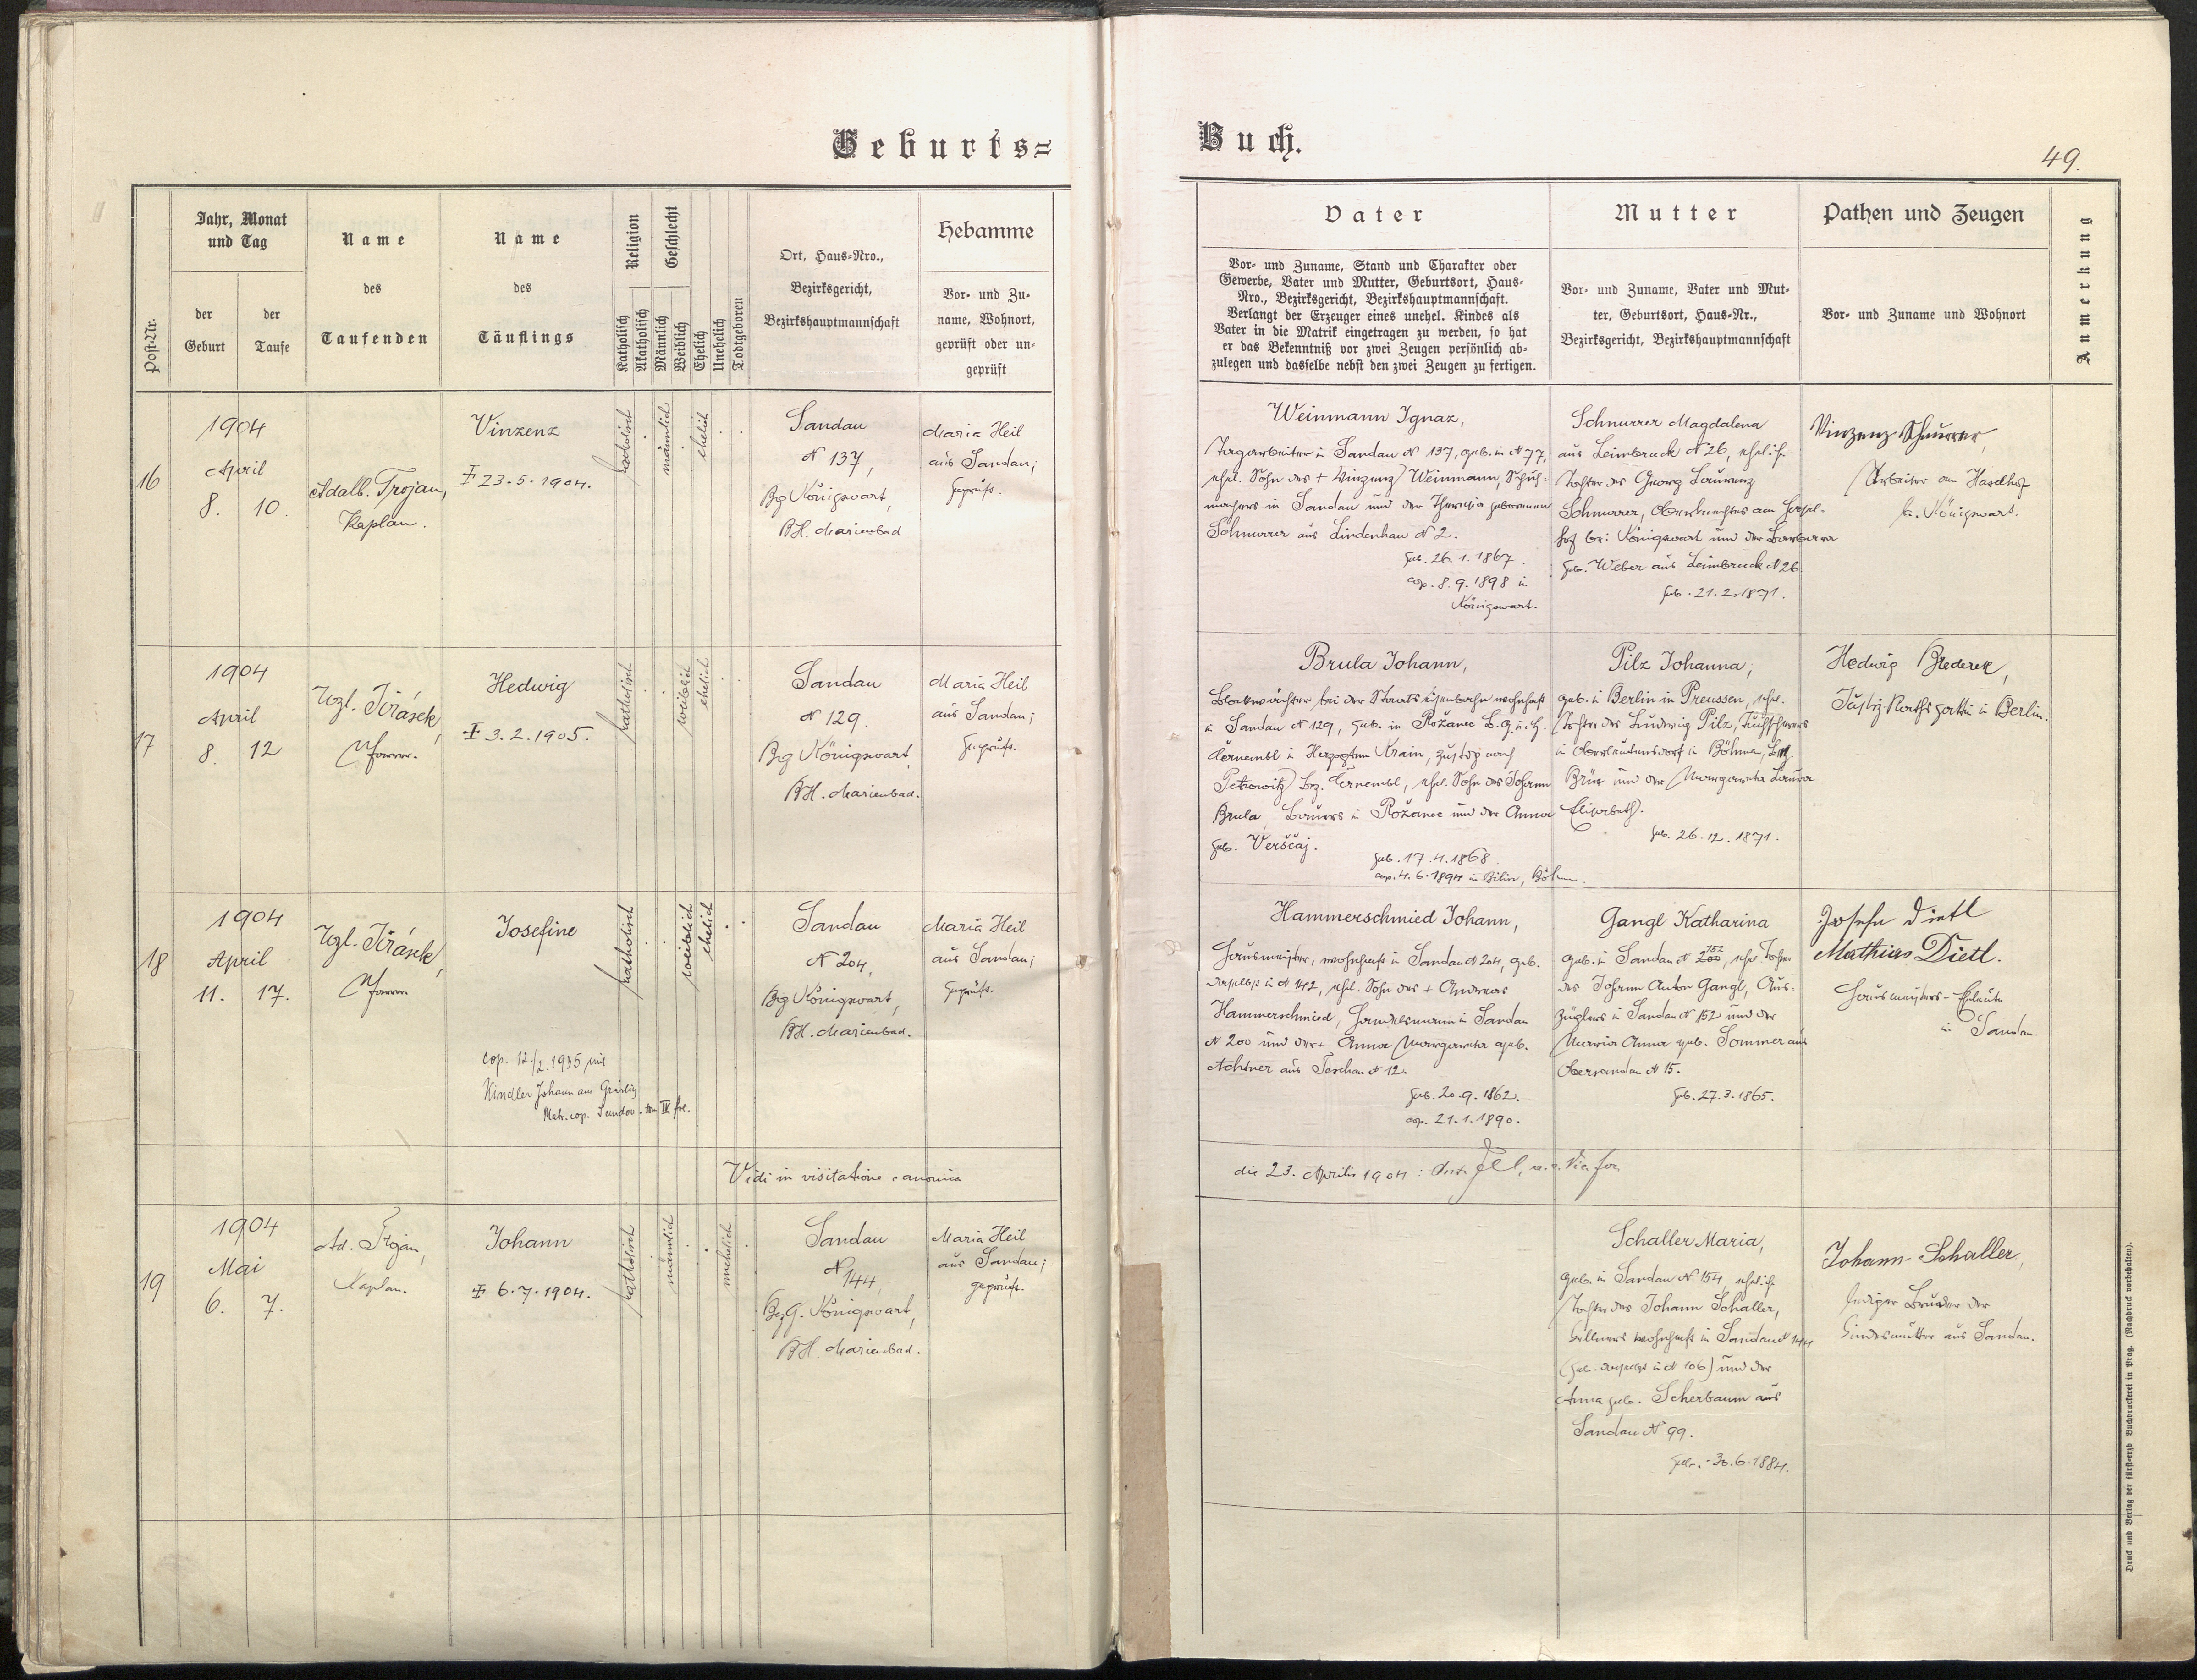 Geburts=
Buch.
49.
Post-Nr.
Jahr, Monat
und Tag
der
Geburt
der
Taufe
Name
des
Taufenden
Name
des
Täuflings
Religion
Katholisch
Akatholisch
Geschlecht
Männlich
Weiblich
Ehelich
Unehelich
Todtgeboren
Ort, Haus-Nro.,
Bezirksgericht,
Bezirkshauptmannschaft
Hebamme
Vor- und Zu-
name, Wohnort,
geprüft oder un-
geprüft
Vater
Vor- und Zuname, Stand und Charakter oder
Gewerbe, Vater und Mutter, Geburtsort, Haus-
Nro., Bezirksgericht, Bezirkshauptmannschaft.
Verlangt der Erzeuger eines unehel. Kindes als
Vater in die Matrik eingetragen zu werden, so hat
er das Bekenntniß vor zwei Zeugen persönlich ab-
zulegen und dasselbe nebst den zwei Zeugen zu fertigen.
Mutter
Vor- und Zuname, Vater und Mut-
ter, Geburtsort, Haus-Nr.,
Bezirksgericht, Bezirkshauptmannschaft
Pathen und Zeugen
Vor- und Zuname und Wohnort
Anmerkung
16
1904
April
8. 10.
Adalb. Trojan,
Kaplan.
Vinzenz
‡ 23.5.1904.
katholisch
männlich
ehelich
Sandau
N 137,
Bzg Königswart,
BH. Marienbad
Maria Heil
aus Sandau;
geprüft.
Weinmann Ignaz,
Tagarbeiter in Sandau N 137, geb. in N 77,
ehel. Sohn des + Vinzenz Weinmann, Schuh-
machers in Sandau und der Theresia geborenen
Schnurrer aus Lindenhau N 2.
geb. 26.1.1867.
cop. 8.9.1898 in
Königswart.
Schnurrer Magdalena
aus Leimbruck N 26, ehelich.
Tochter des Georg Laurenz
Schnurrer, Oberknechtes am
hof bei Königswart und der Barbara
geb. Weber aus Leimbruck N 26.
geb. 21.2.1871.
Vinzenz Schnurrer,
Arbeiter am Haselhof
b. Königswart.
17
1904
April
8. 12
Wzl. Jirásek,
Pfarrer.
Hedwig
‡ 3.2.1905.
katholisch
weiblich
ehelich
Sandau
N 129.
Bzg Königswart,
BH. Marienbad.
Maria Heil
aus Sandau;
geprüft.
Brula Johann,
Blockwächter bei der Staatseisenbahn wohnhaft
in Sandau N 129, geb. in Rožanec B.G. u. H.
Černembl in Herzogthum Krain, zustdg nach
Petrowitz Bez. Černembl, ehel. Sohn des Johann
Brula, Bauers in Rožanec und der Anna
geb. Verščaj.
geb. 17.4.1868.
cop. 4.6.1894 in Bilin, Böhm.
Pilz Johanna,
geb. in Berlin in Preussen, ehel.
Tochter des Ludwig Pilz, Tuchscherers
in Oberleutensdorf in Böhmen, Bez.
Brüx und der Margaretha Laura
Elisabeth.
geb. 26.12.1871.
Hedwig Brederek,
Justiz-Raths gattin in Berlin.
18
1904
April
11. 17.
Wzl. Jirásek,
Pfarrer.
Josefine
cop. 12./2. 1935 mit
Kindler Johann
Matr. cop. Sandau. tom IV fol.
katholisch
weiblich
ehelich
Sandau
N 204,
Bzg Königswart,
BH. Marienbad.
Maria Heil
aus Sandau;
geprüft.
Hammerschmied Johann,
Hausmeister, wohnhaft in Sandau N 204, geb.
daselbst in N 142, ehel. Sohn des + Andreas
Hammerschmied, Handelsmann in Sandau
N 200 und der + Anna Margaretha geb.
Achtner aus Teschau N 12.
geb. 20.9.1862.
cop. 21.1.1890.
Gangl Katharina
geb. in Sandau N 152 200, ehel. Tochter
des Johann Anton Gangl, Aus-
züglers in Sandau N 152 und der
Maria Anna geb. Sommer aus
Obersandau N 15.
geb. 27.3.1865.
Josefa Dietl
Mathias Dietl.
Hausmeisters-Eheleute
in Sandau.
Vidi in visitatione canonica
die 23. Aprilis 1904: Ant.
19
1904
Mai
6. 7.
Ad. Trojan,
Kaplan.
Johann
‡ 6.7.1904.
katholisch
männlich
unehelich
Sandau
N 144,
BzG. Königswart,
BH. Marienbad.
Maria Heil
aus Sandau;
geprüft.
Schaller Maria,
geb. in Sandau N 154, ehelich.
Tochter des Johann Schaller,
wohnhaft in Sandau N 144
(geb. daselbst in N 106) und der
Anna geb. Scherbaum aus
Sandau N 99.
geb. 30.6.1884.
Johann Schaller,
lediger Bruder der
Kindesmutter aus Sandau.
Druck und Verlag der fürst-erzb Buchdruckerei in Prag. (Nachdruck vorbehalten).